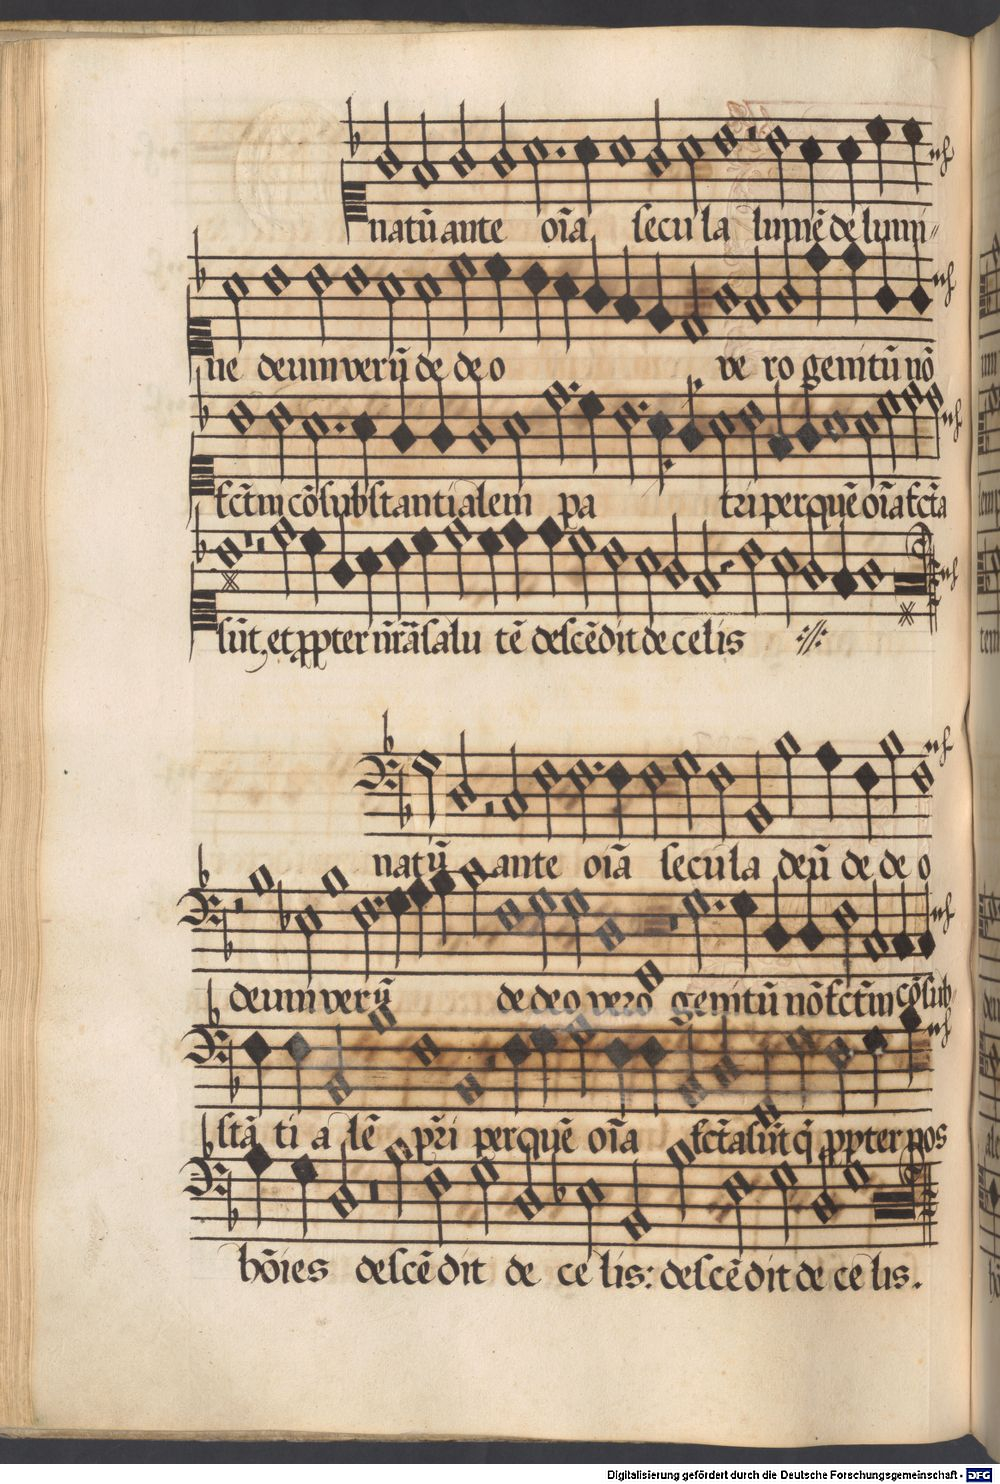 natū ante oīa secula lumē de lumi
ne deum verū de deo vero genitū nō
fctm cōsubstantialem pa tri per quē oīa fcta
sūt, et ppter nrā salu tē descēdit de celis
natū ante oīa secula deū de deo
deum verū de deo vero genitū nō fctm cōsub
stā ti a lē pri per quē oīa fcta sūt q ppter nos
hōies descēdit de celis: descēdit de celis.
Digitalisierung gefördert durch die Deutsche Forschungsgemeinschaft - DFG